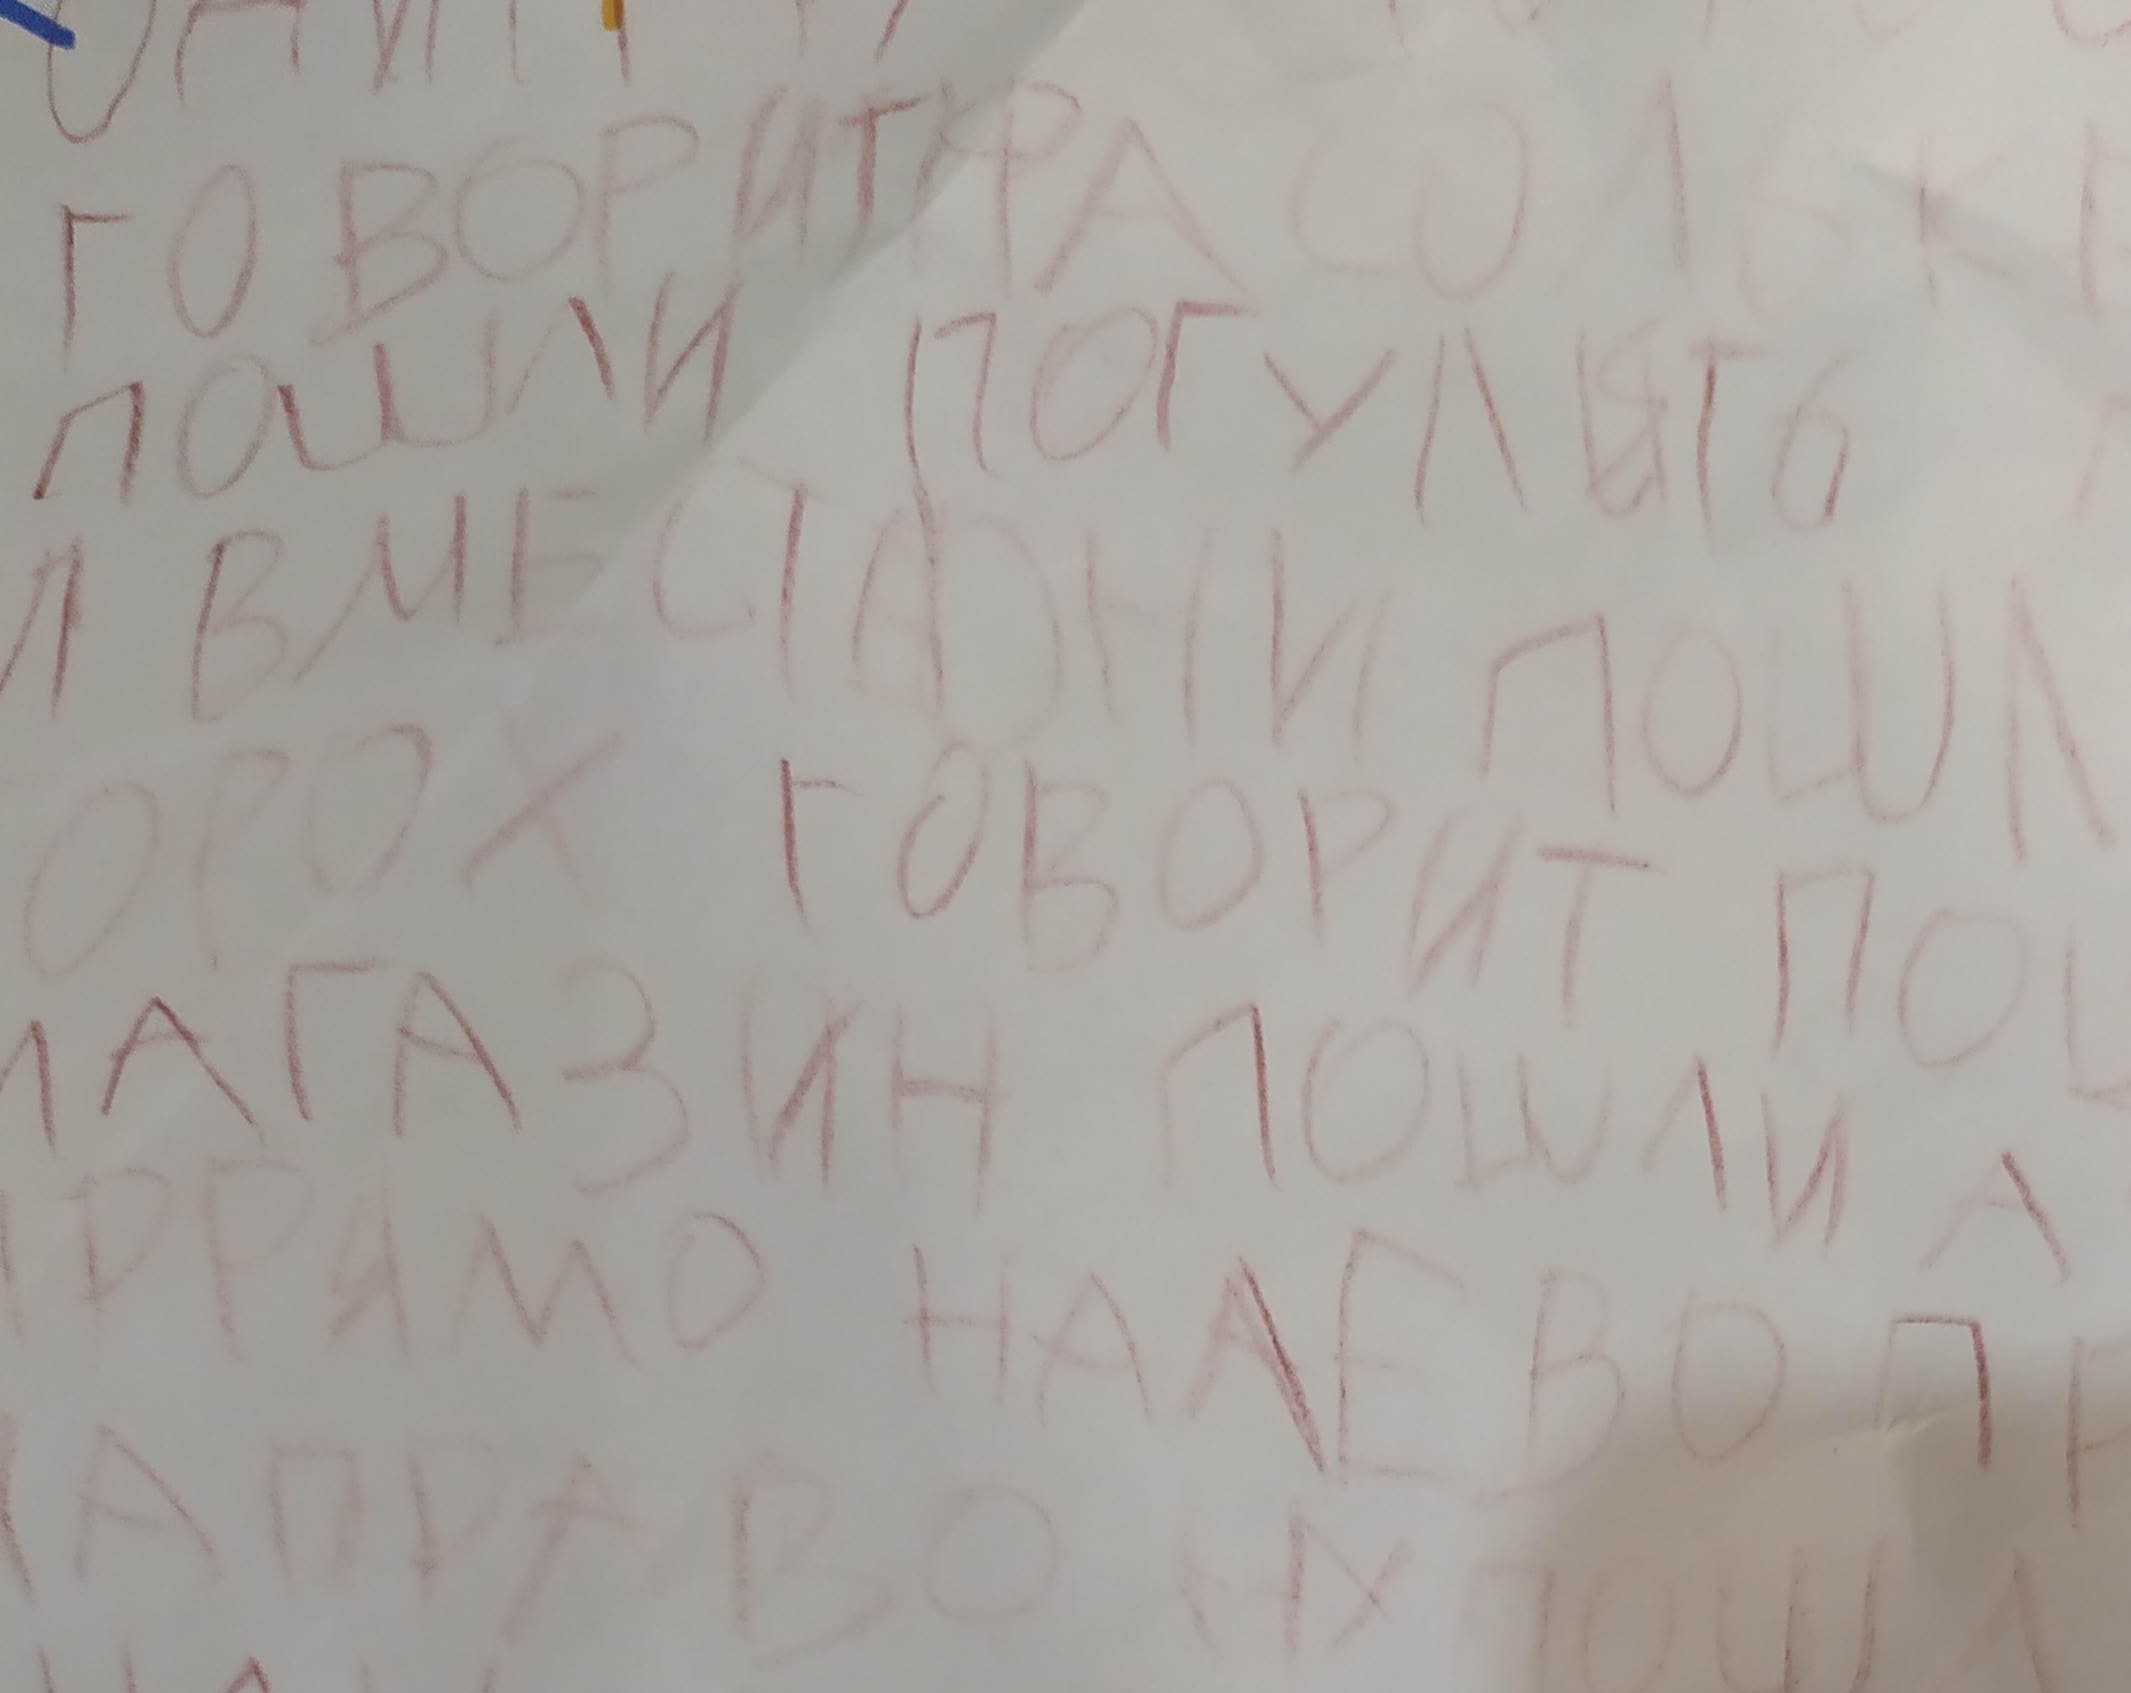 ГОВОРИТ ФАСОЛЬКЕ
ПОШЛИ ПОГУЛЯТЬ
ВМЕСТ ОНИ ПОШЛ
ОРОХ ГОВОРИТ ПОШ
МАГАЗИН ПОШЛИ А
ПРЯМО НАЛЕВО ПР
НАПРАВО ПОШЛ